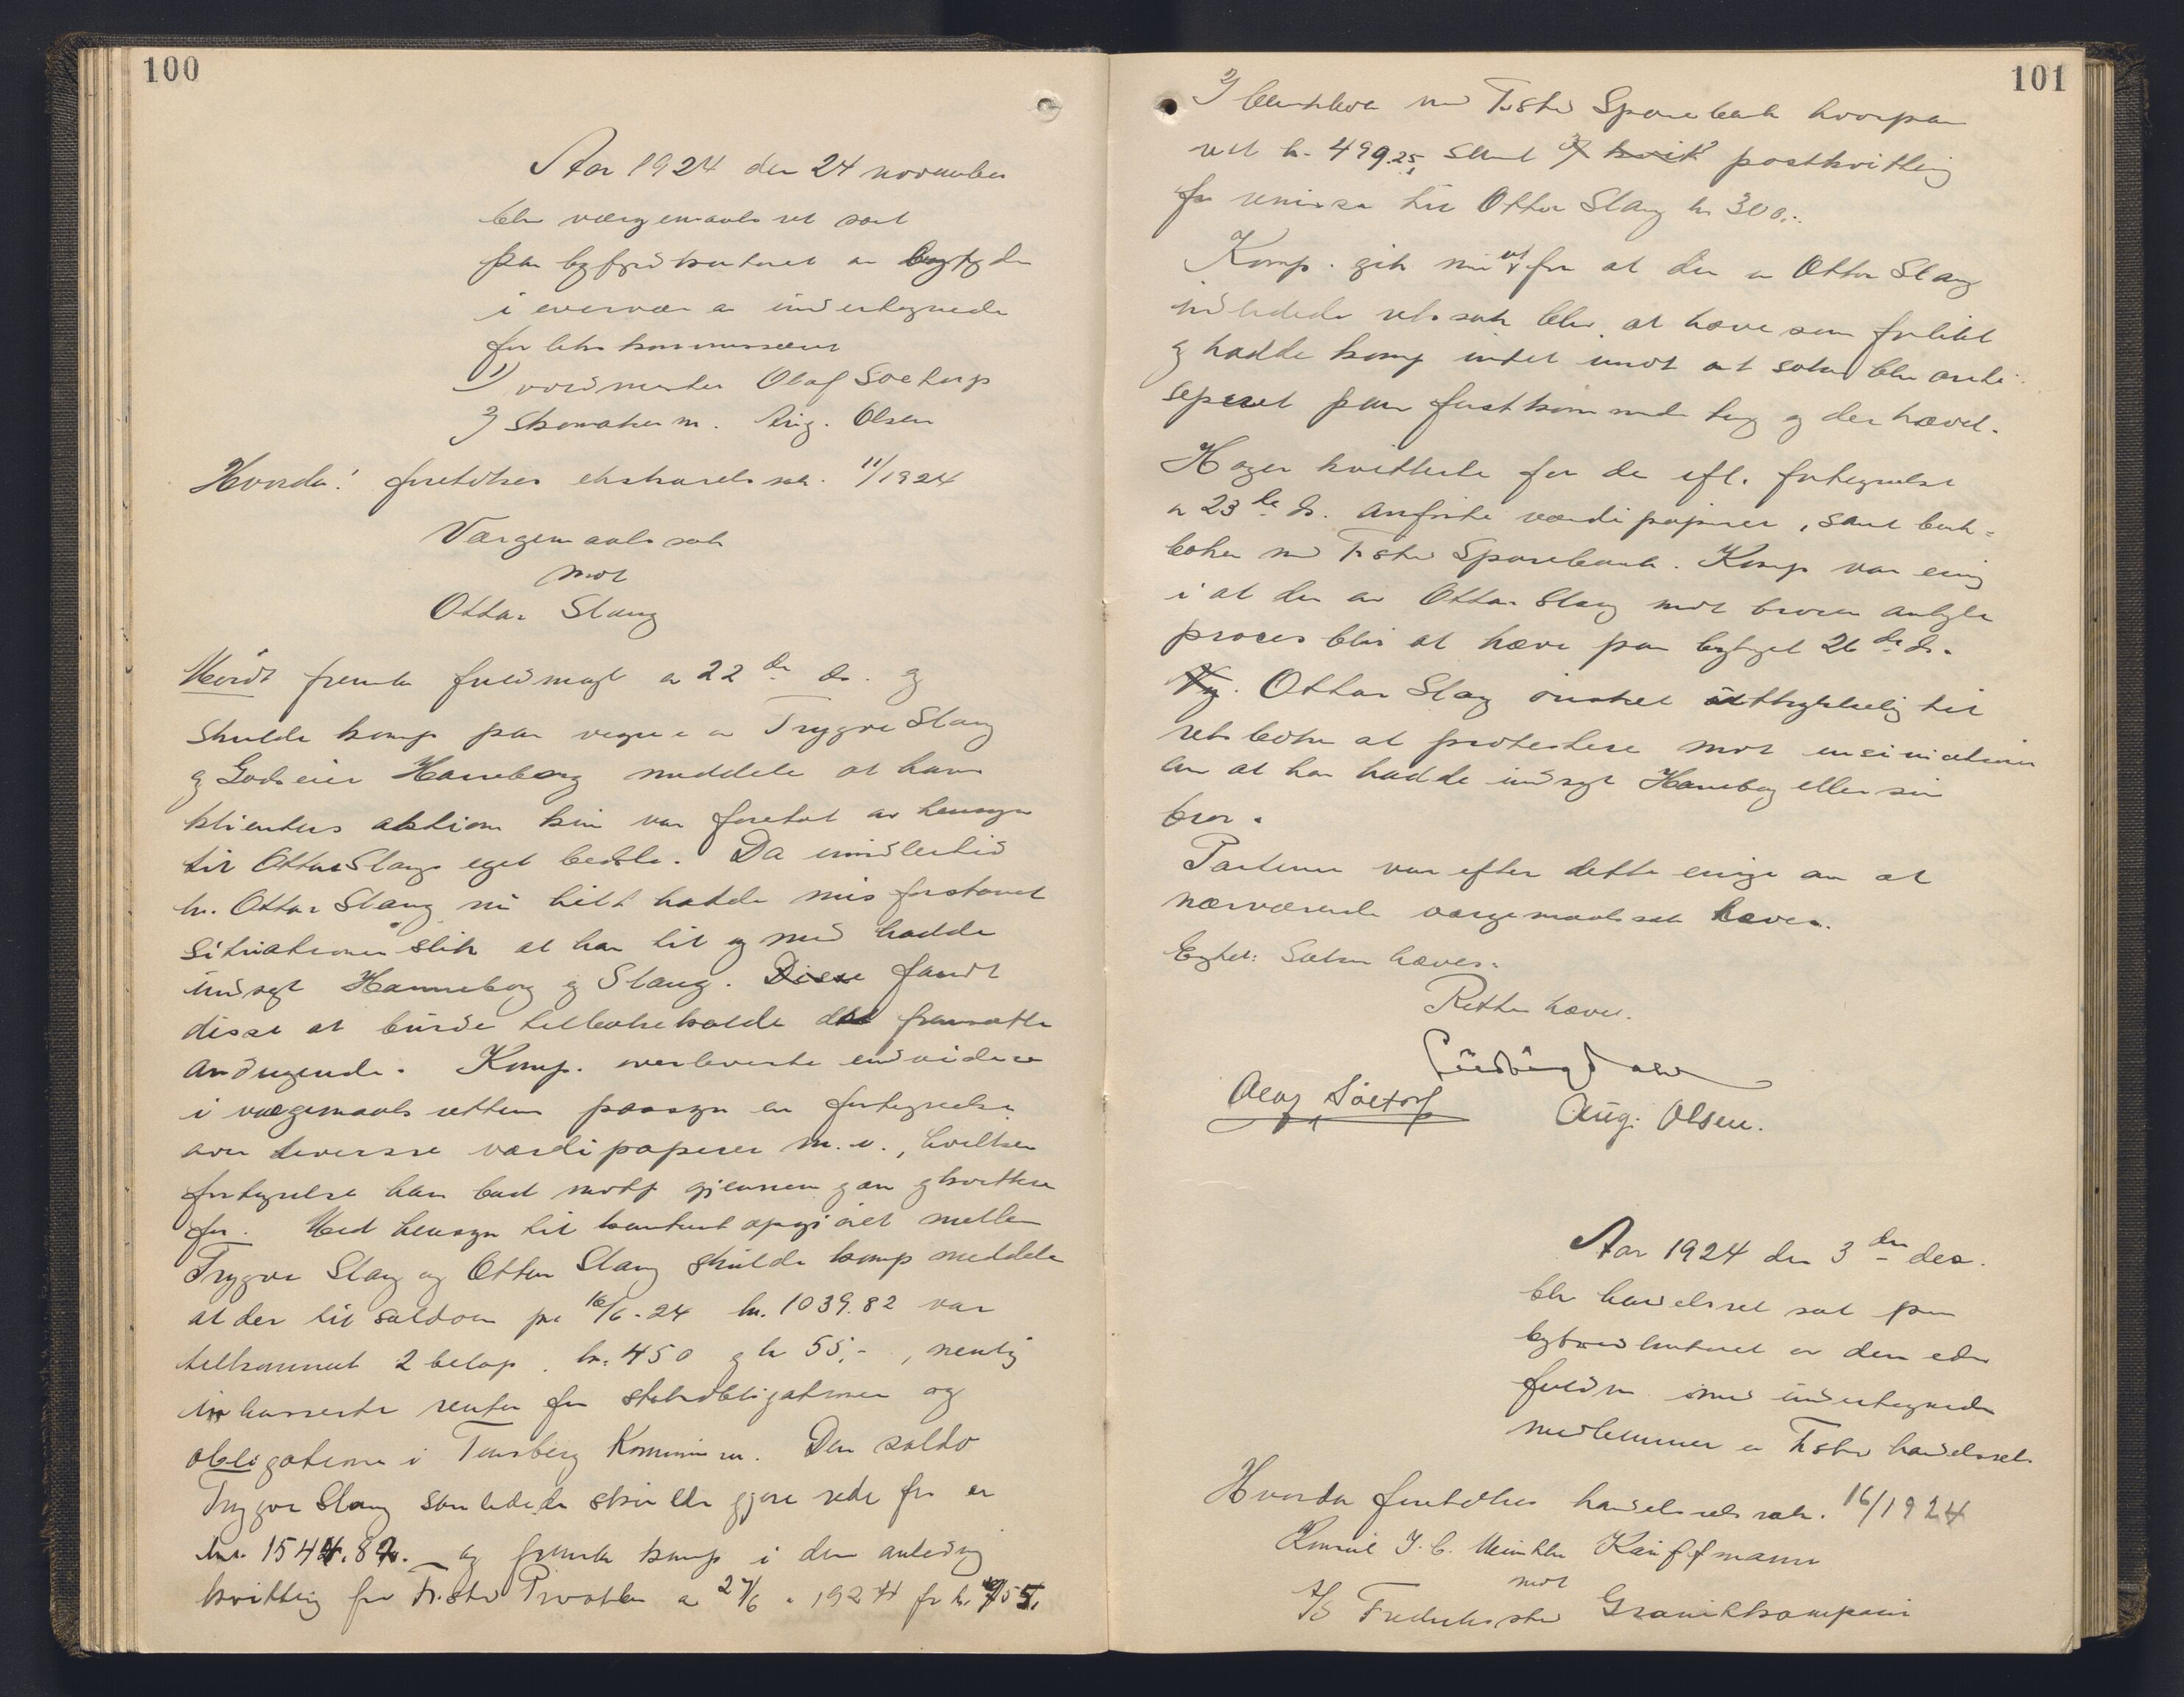 100
Aar 1924 den 24 november
blev værgemaals ret sat
paa byfogdkontoret av byfogden
i overvær av undertegnede
for likskommissærer
1) vordmester Olaf Soetorp
2) Skomakerm. Aug. Olsen
Hvorda: foretokes ekstraretssak. 11/1924
Værgemaalssak
mot
Ottar Stang
Mørdt fremla fuldmagt av 22de ds. og
skulde komp paa vegne av Trygve Stang
og Godseier Hanneborg meddele at hans
klienters aktion kun var foretat av hensyn
til Ottar Stangs eget bedste. Da imidlertid
hr. Ottar Stang nu helt hadde misforstaaet
situationen slik at han til og med hadde
undsagt Hanneborg og Stang. Disse fandt
disse at burde tilbakekalde det fremsatte
andragende. Komp. overleverte endvidere
i værgemaalsrettens paasyn en fortegnelse
over diverse værdipapirer m.v., hvilken
fortegnelse han bad motp gjennemgaa og kvittere
for. Med hensyn til kontantopgjøret mellem
Trygve Stang og Ottar Stang skulde komp meddele
at der til saldoen pr 16/6-24 kr. 1039.82 var
tilkommet 2 beløp. kr. 450 og kr 55,-, nemlig
inkasserte renter for statsobligationer og
obligationer i Tønsberg Kommune. Den saldo
Trygve Stang saaledes skulde gjøre rede for er
kr. 1544.82. og fremla komp i den anledning
kvittering fra Fr.stad Privatbk av 27/6 1924 for kr. 755,
101
2) bankbok med Fr.stad Sparebank hvorpaa
rest kr. 499.25, samt 3) kvit postkvittering
for remisse til Ottar Stang kr 300,-.
Komp. gik nu ut fra at den av Ottar Stang
indledede retssak blev at hæve som forlikt
og hadde komp intet imot at saken blev anti-
siperet paa førstkommende ting og der hævet.
Hager kvitterte for de ifl. fortegnelse
av 23de ds. anførte værdipapirer, samt bank-
boken med Fr.stad Sparebank. Komp var enig
i at den av Ottar Stang mot broren anlagte
proces blir at hæve paa bytinget 26de ds.
Vg. Ottar Stang ønsket uttrykkelig til
retsboken at protestere mot insinuationen
om at han hadde undsagt Hanneborg eller sin
bror.
Parterne var efter dette enige om at
nærværende værgemaalssak hæves.
Eragtet: Saken hæves.
Retten hævet.
Olaf Soetorp Aug. Olsen.
Aar 1924 den 3den des.
blev handelsret sat paa
byfogdkontoret av den ed.
fuldm. med undertegnede
medlemmer av Fr.stad handelsret.
Hvorda foretokes handelsretssak. 16/1924
Konsul J. C. Kauffmann
mot
A/S Fredriksstad Granitkompani